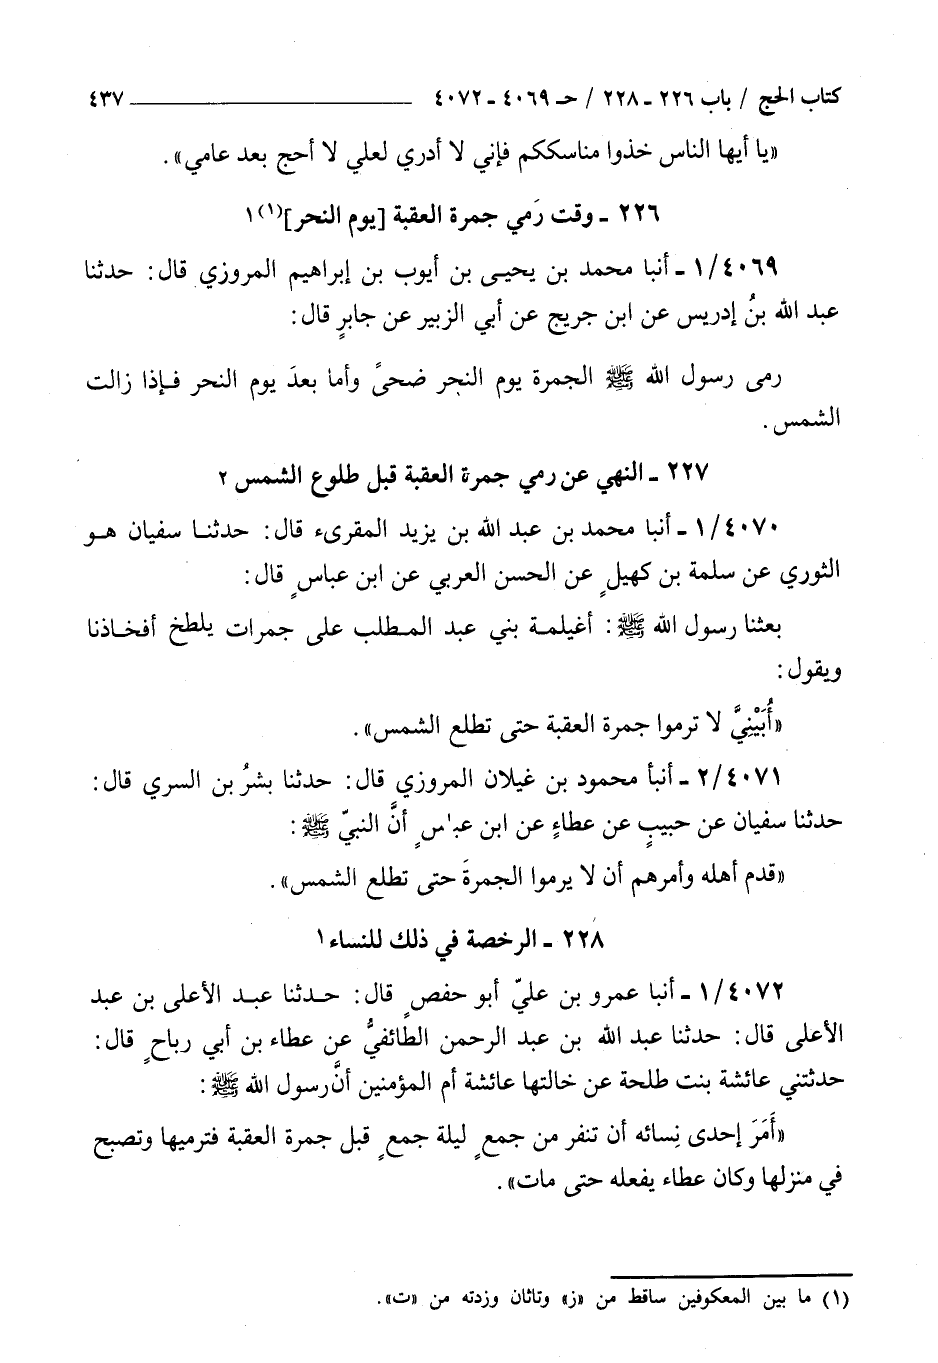 كتاب الحج / باب ٢٢٦ - ٢٢٨ / حـ ٤٠٦٩ - ٤٠٧٢ ــــــــ ٤٣٧
«يا أيها الناس خذوا مناسككم فإني لا أدري لعلي لا أحج بعد عامي».
٢٢٦ - وقت رَمي جمرة العقبة [يوم النحر](١) ١
١/٤٠٦٩ - أنبا محمد بن يحيى بن أيوب بن إبراهيم المروزي قال: حدثنا
عبد الله بنُ إدريس عن ابن جريج عن أبي الزبير عن جابرٍ قال:
رمى رسول الله ﷺ الجمرة يوم النحر ضحىً وأما بعدَ يوم النحر فإذا زالت
الشمس.
٢٢٧ - النهي عن رمي جمرة العقبة قبل طلوع الشمس ٢
١/٤٠٧٠ - أنبا محمد بن عبد الله بن يزيد المقرىء قال: حدثنا سفيان هو
الثوري عن سلمة بن كهيلٍ عن الحسن العربي عن ابن عباسٍ قال:
بعثنا رسول الله ﷺ: أغيلمة بني عبد المطلب على جمرات يلطخ أفخاذنا
ويقول:
«أُبَيْنِيَّ لا ترموا جمرة العقبة حتى تطلع الشمس».
٢/٤٠٧١ - أنبأ محمود بن غيلان المروزي قال: حدثنا بشرُ بن السري قال:
حدثنا سفيان عن حبيبٍ عن عطاءٍ عن ابن عباسٍ أنَّ النبيّ ﷺ:
«قدم أهله وأمرهم أن لا يرموا الجمرةَ حتى تطلع الشمس».
٢٢٨ - الرخصة في ذلك للنساء ١
١/٤٠٧٢ - أنبا عمرو بن عليّ أبو حفصٍ قال: حدثنا عبد الأعلى بن عبد
الأعلى قال: حدثنا عبد الله بن عبد الرحمن الطائفيُّ عن عطاء بن أبي رباحٍ قال:
حدثتني عائشة بنت طلحة عن خالتها عائشة أم المؤمنين أنَّ رسول الله ﷺ:
«أَمَرَ إحدى نِسائه أن تنفر من جمعٍ ليلة جمعٍ قبل جمرة العقبة فترميها وتصبح
في منزلها وكان عطاء يفعله حتى مات».
(١) ما بين المعكوفين ساقط من «ز» وتاثان وزدته من «ت».